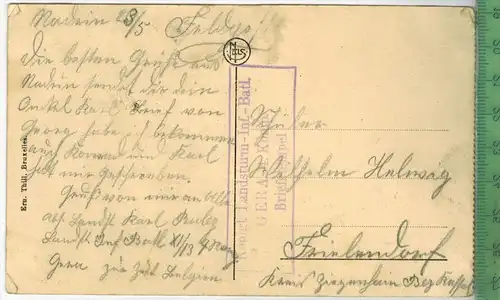 Nadein 28/5
Feldpost
Die besten Grüße aus
Nadein sendet dir dein
Onkel Karl Brief von
Georg habe ich bekommen
auch Konrad und Karl
hat mir geschrieben.
Gruß von mir an Alle
Abs. Landst. Karl
Landst. Inf. Batl. XI/13 4 Komp
Gera zur Zeit Belgien
Ern. Thill, Bruxelles
NELS
Landsturm-Inf.-Batl.
GERA
Briefstempel
Schüler
Wilhelm Helwig
Frielendorf
Kreis Ziegenhain Bez Kassel